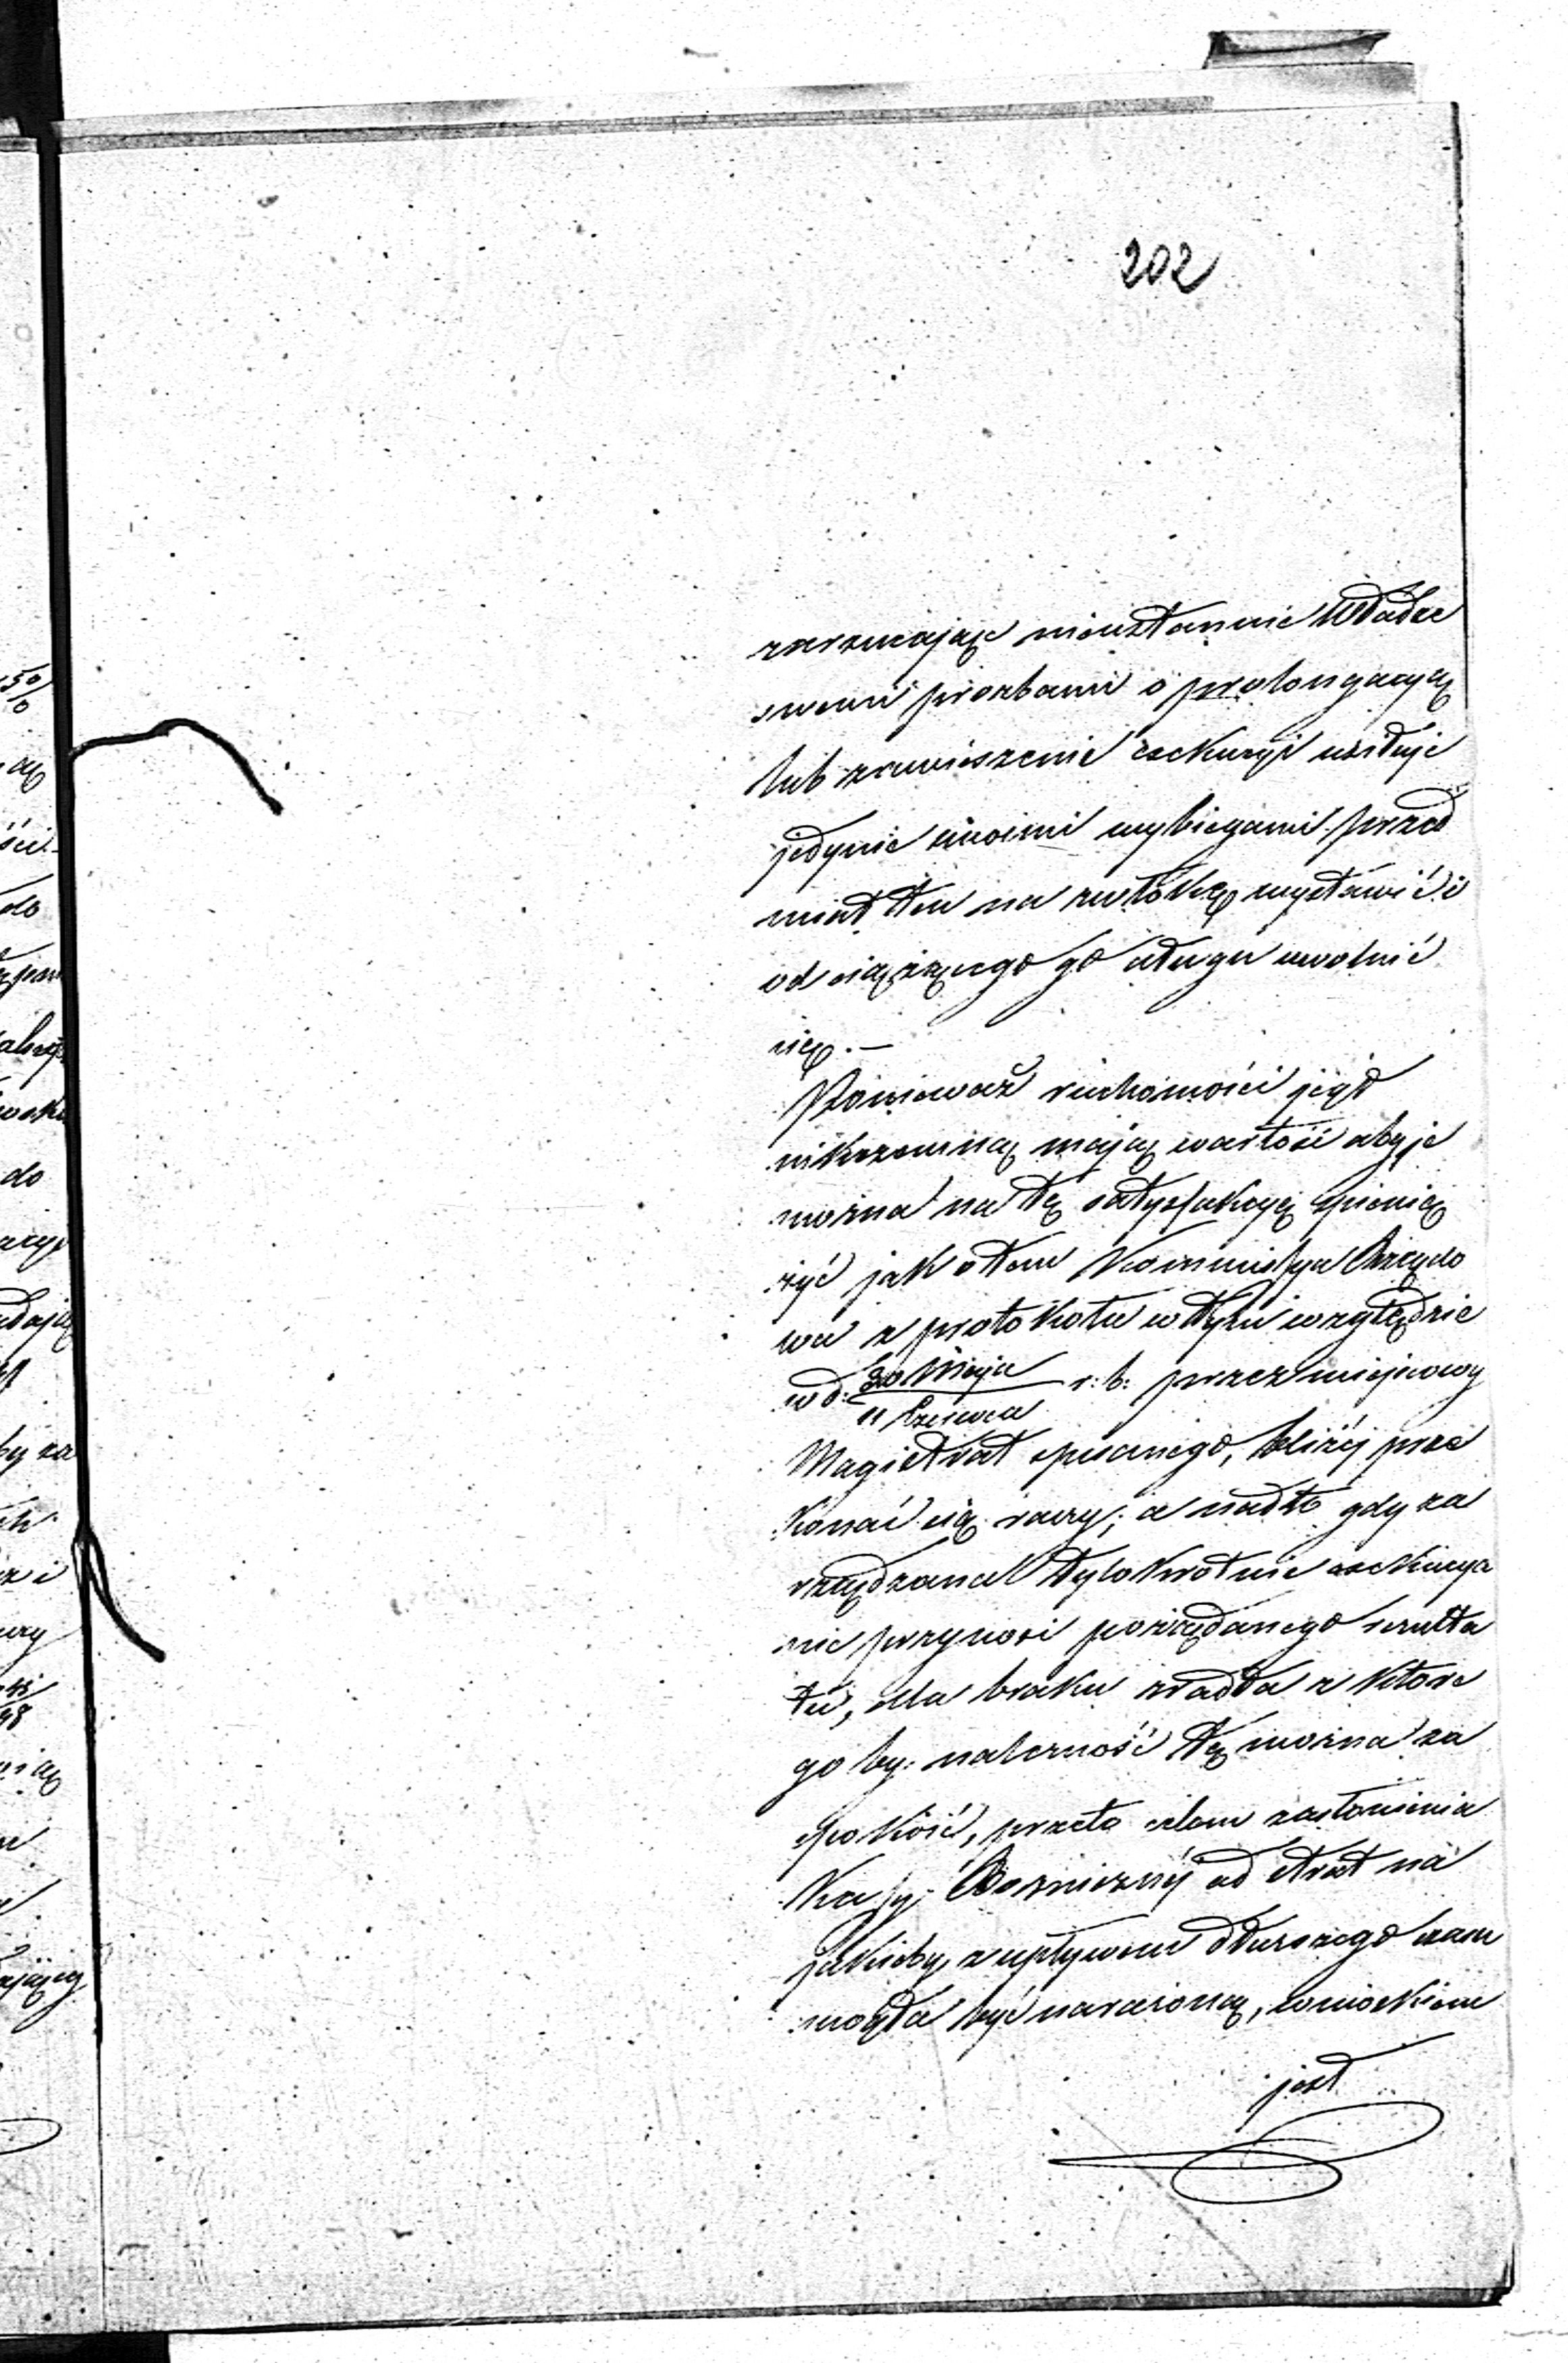 202
zarzucając nieustannie Władze
swemi prozbami o prolongacyą
lub zawieszenie exekucyi usiłuje
jedynie swoimi wybiegami przed
miot ten na zwłokę wystawić i
od ciążącego go długu uwolnić
się. —
Ponieważ ruchomości jego
nikczemną mają wartość aby je
można na tę satysfakcyę spienię
żyć jak o tem Kommissya Rządo
wa z protokołu w tym względzie
w d: 30 Maja / 11 Czerwca r: b: przez miejscowy
Magistrat spisanego, bliżéj prze
konać się raczy; a nadto gdy za
rządzana tylokrotnie exekucya
nie przynosi pożądanego rezulta
tu, dla braku źródła z które
go by należność tę można za
spokoić, przeto celem zasłonienia
Kassy od strat na
jakieby z upływem dłuższego czasu
mogła być narażoną, wnioskiem
jest